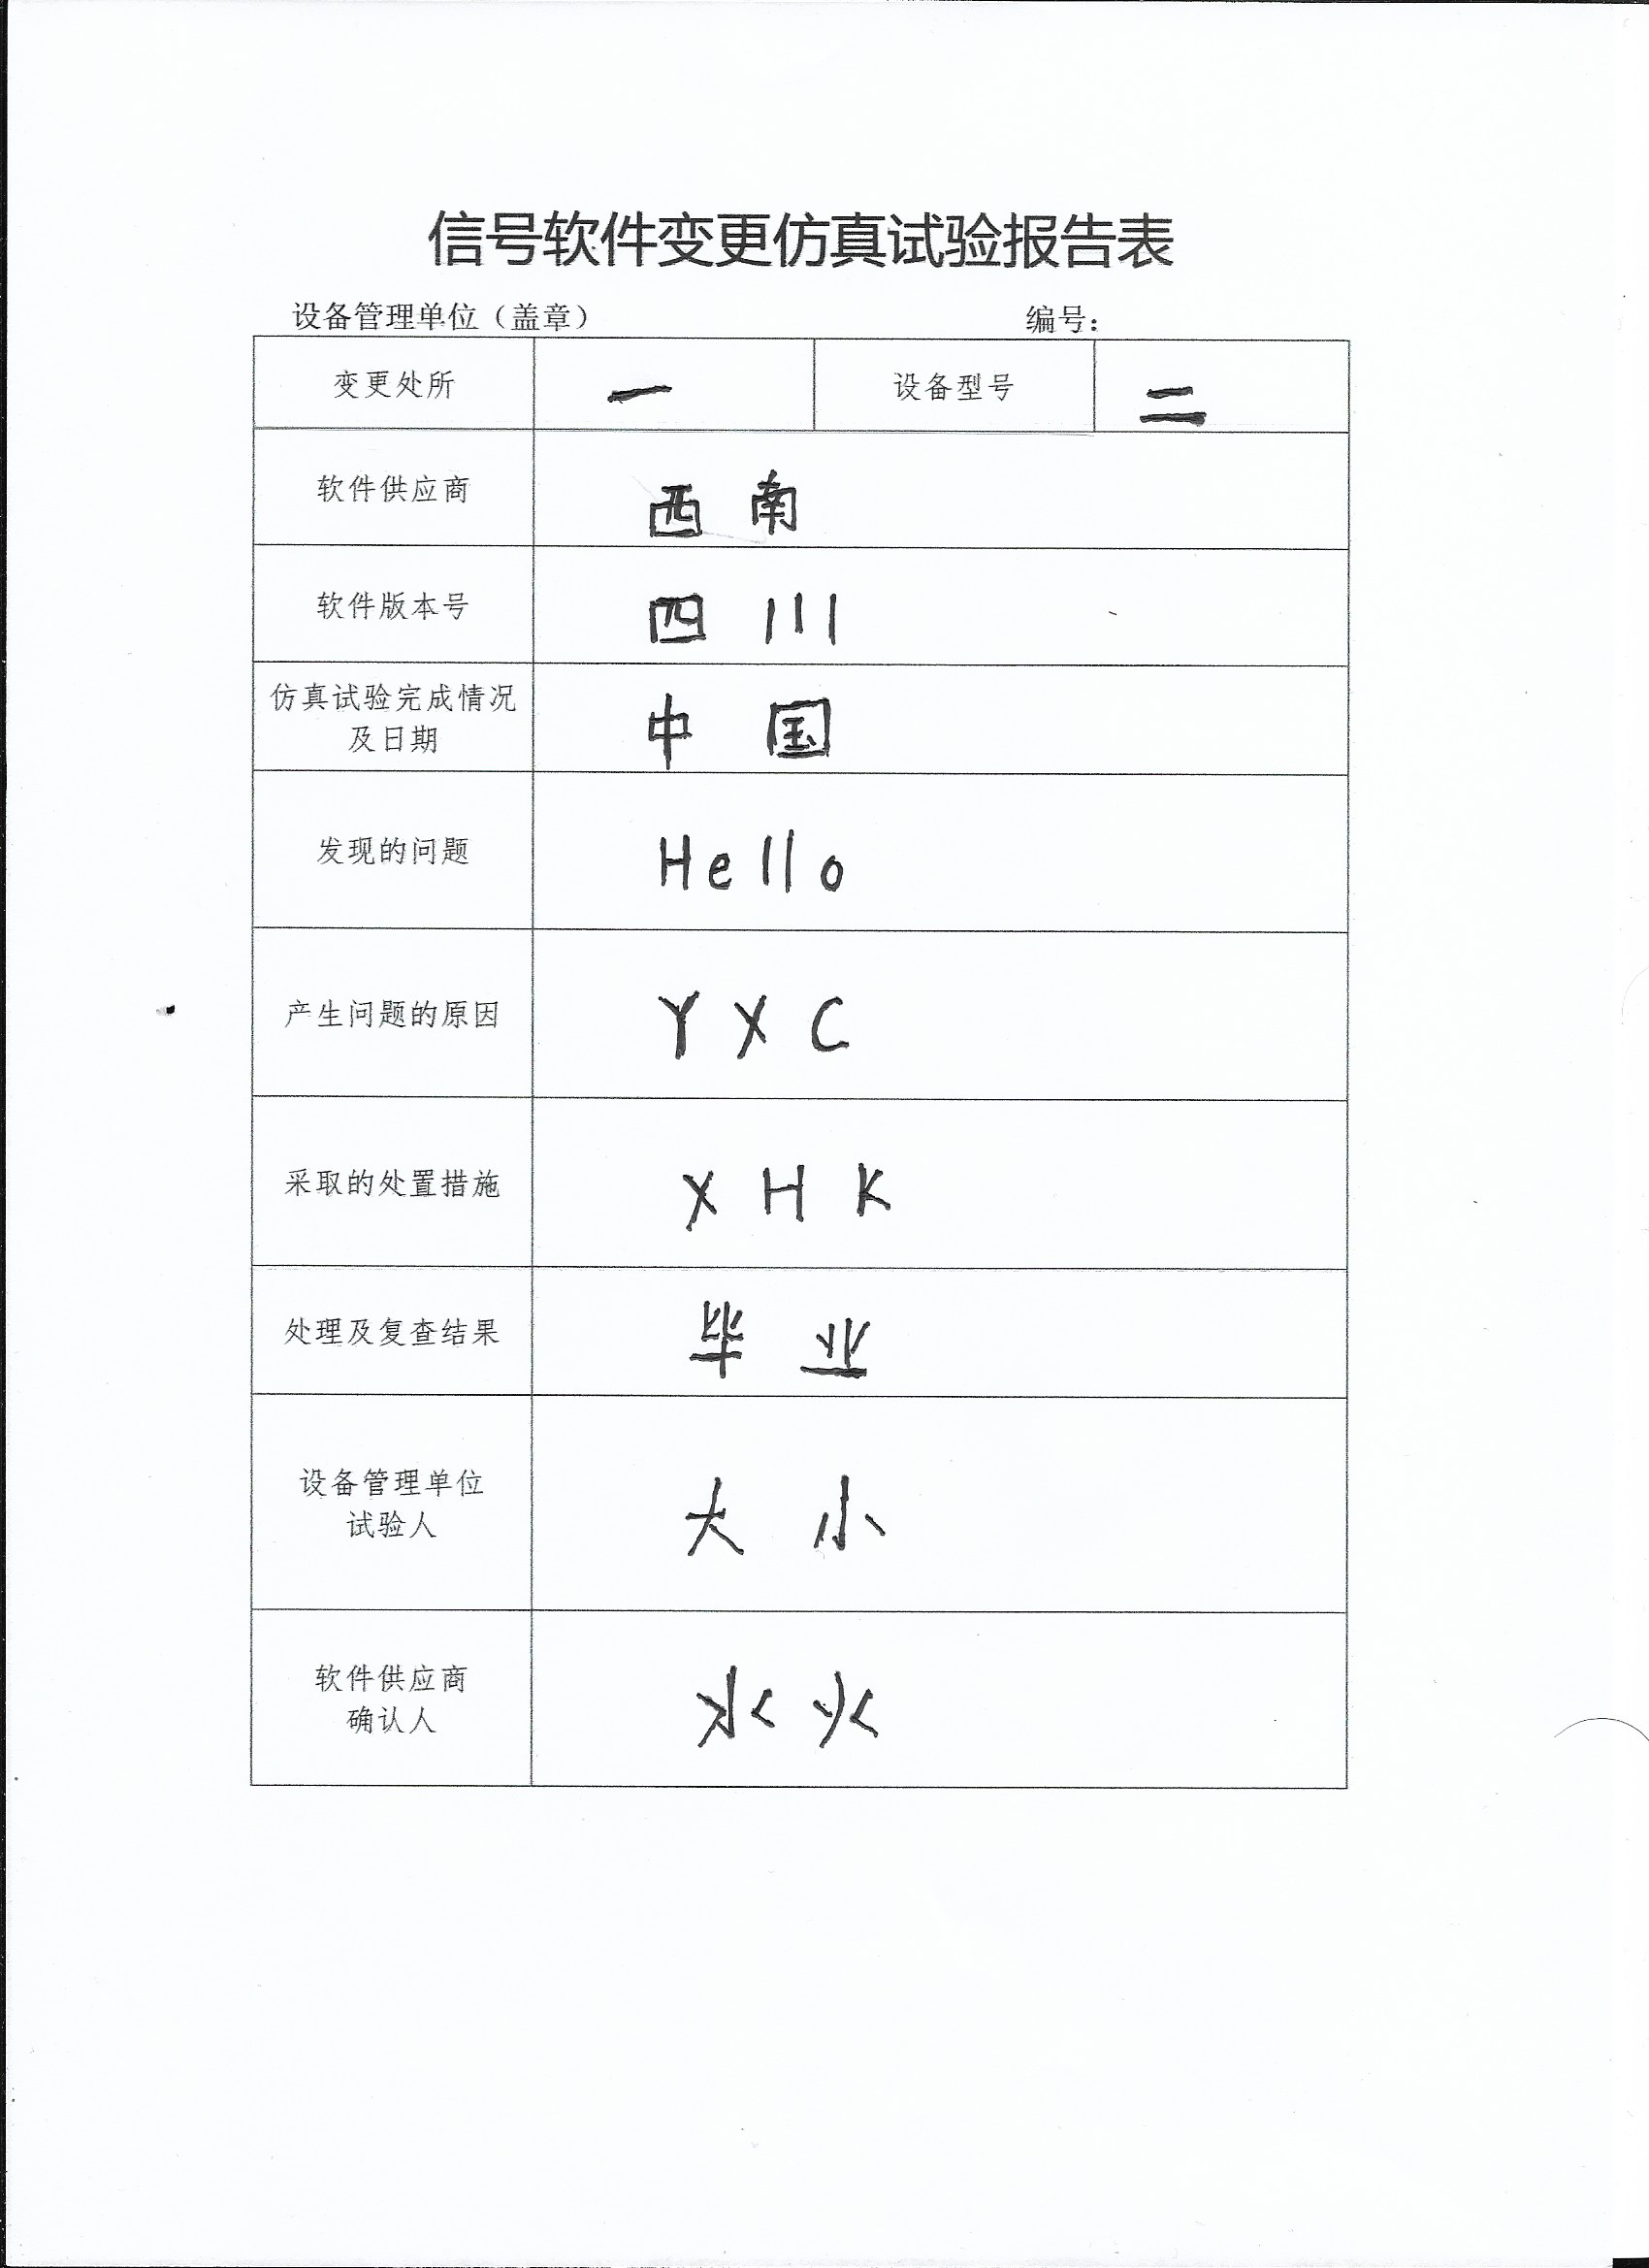 信号软件变更仿真试验报告表
设备管理单位（盖章） 编号：
变更处所 一 设备型号 二
软件供应商 西南
软件版本号 四川
仿真试验完成情况
及日期 中国
发现的问题 Hello
产生问题的原因 Y X C
采取的处置措施 X H K
处理及复查结果 毕业
设备管理单位
试验人 大小
软件供应商
确认人 水火